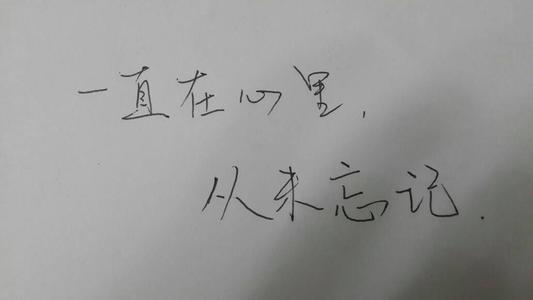 一直在心里,
从未忘记.